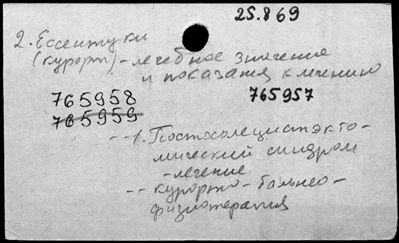 25.869
2. Ессентуки
(курорт) - лечебное значение
и показания к лечению
765958
765957
765959
-- 1. Постхолецистэкто-
мический синдром
- лечение
-- курорто-бальнео-
физиотерапия